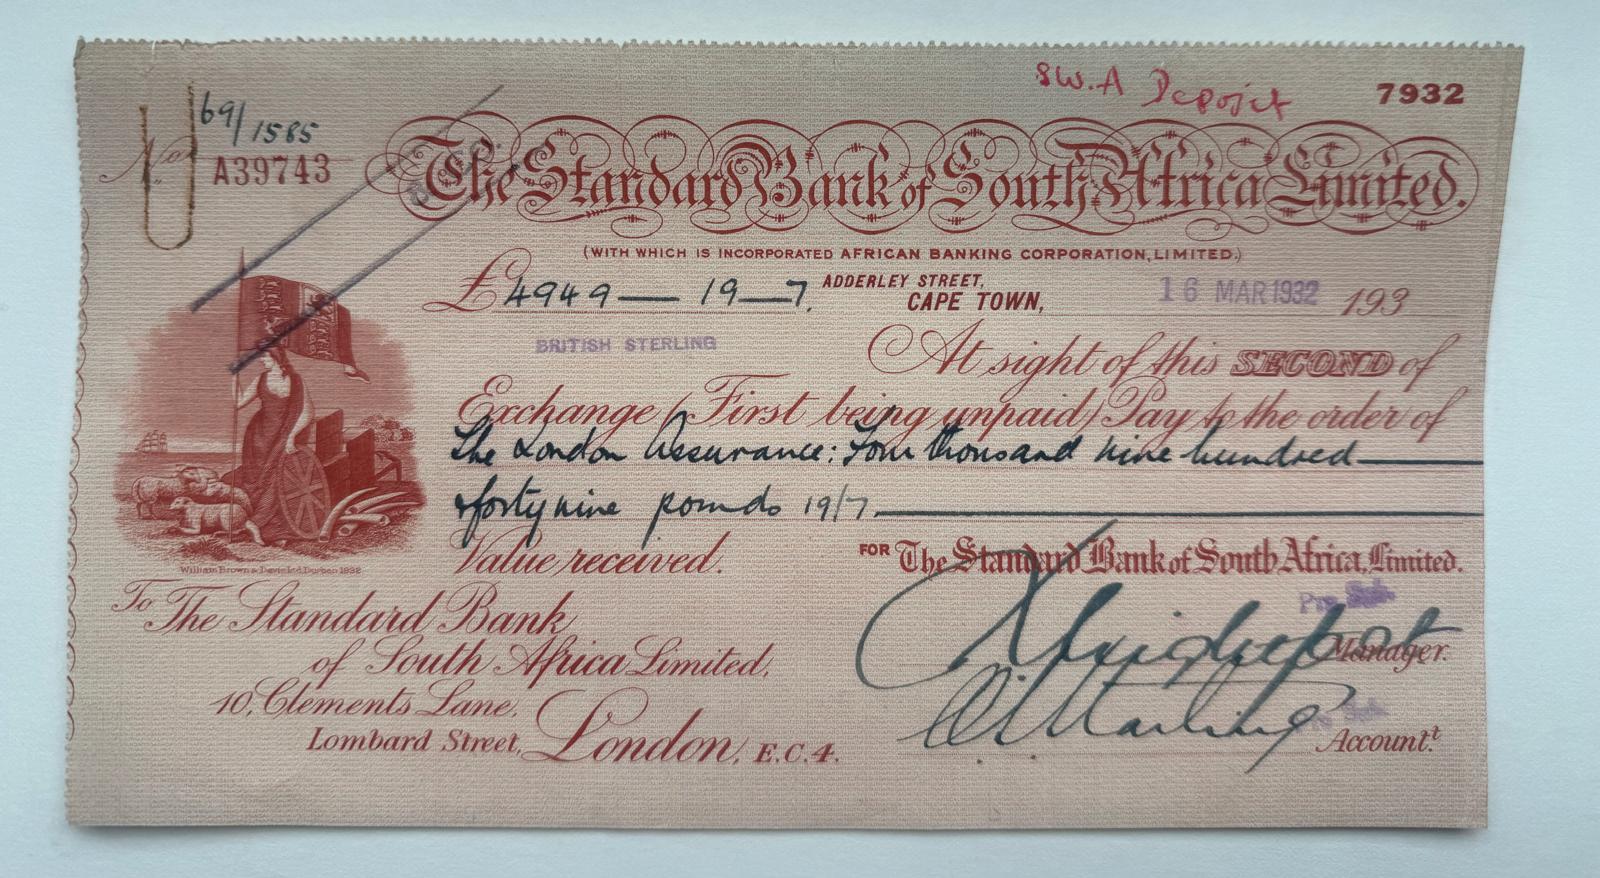 SW.A Deposit
7932
69/1585
No. A39743
The Standard Bank of South Africa Limited.
(WITH WHICH IS INCORPORATED AFRICAN BANKING CORPORATION, LIMITED.)
£4949 — 19 — 7.
ADDERLEY STREET,
CAPE TOWN, 16 MAR 1932 193
BRITISH STERLING
At sight of this SECOND of
Exchange (First being unpaid) Pay to the order of
The London Assurance: Four thousand nine hundred
& forty nine pounds 19/7
Value received.
FOR The Standard Bank of South Africa, Limited.
William Brown & Davis Ltd. Durban 1932
Pro Sub.
Manager.
Sub.
Account.t
To The Standard Bank
of South Africa Limited,
10, Clements Lane,
Lombard Street, London, E.C.4.